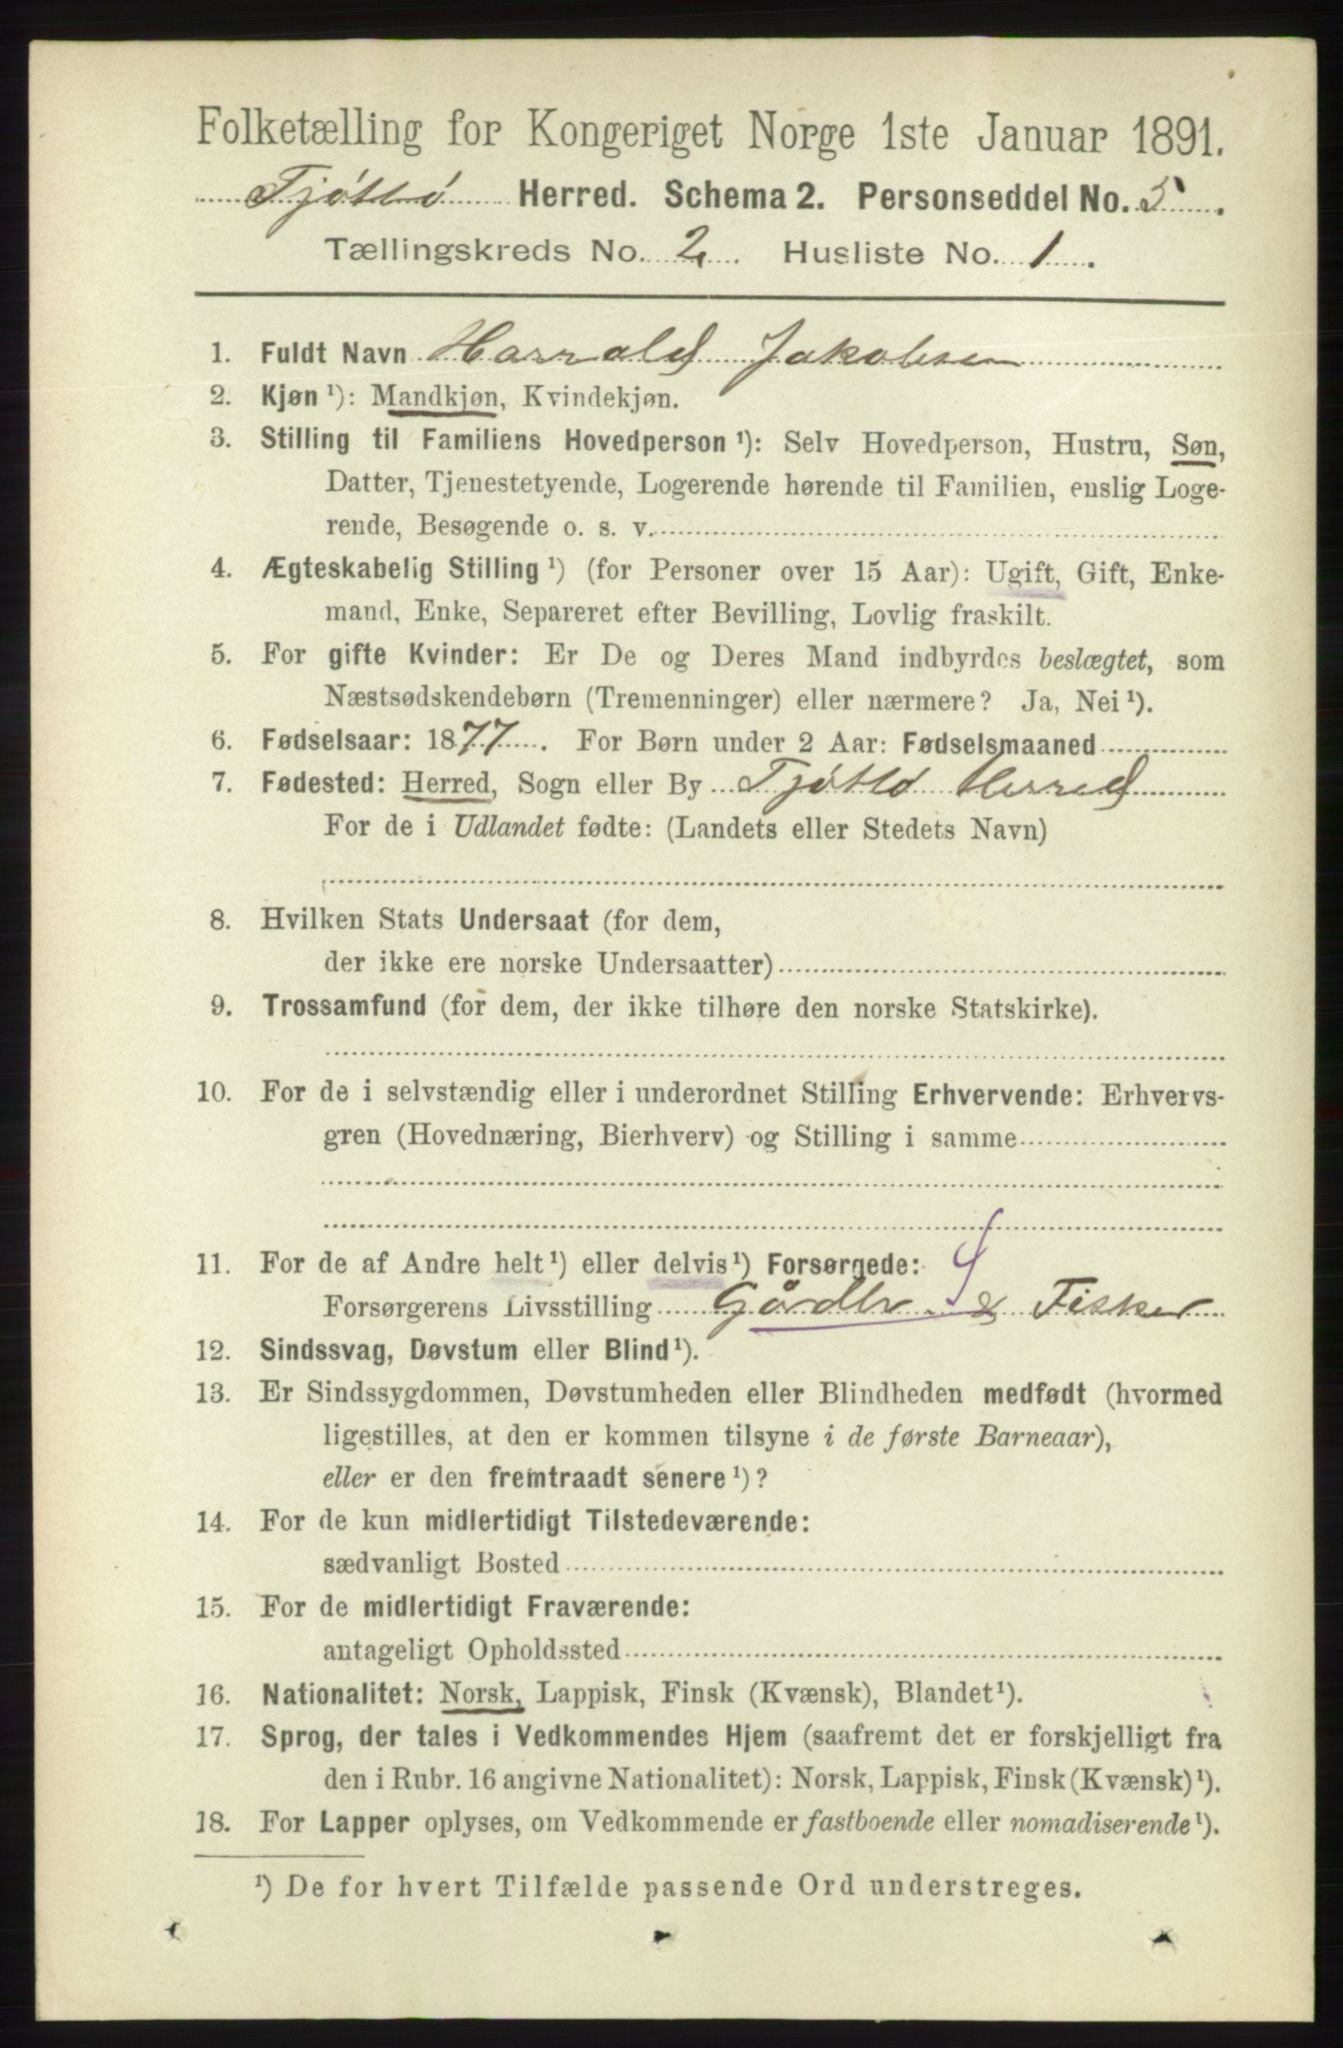 Folketælling for Kongeriget Norge 1ste Januar 1891.
Tjøttø Herred. Schema 2. Personseddel No. 5.
Tællingskreds No. 2. Husliste No. 1.
1. Fuldt Navn Harrald Jakobsen
2. Kjøn ¹): Mandkjøn, Kvindekjøn.
3. Stilling til Familiens Hovedperson ¹): Selv Hovedperson, Hustru, Søn,
Datter, Tjenestetyende, Logerende hørende til Familien, enslig Loge-
rende, Besøgende o. s. v.
4. Ægteskabelig Stilling ¹) (for Personer over 15 Aar): Ugift, Gift, Enke-
mand, Enke, Separeret efter Bevilling, Lovlig fraskilt.
5. For gifte Kvinder: Er De og Deres Mand indbyrdes beslægtet, som
Næstsødskendebørn (Tremenninger) eller nærmere? Ja, Nei ¹).
6. Fødselsaar: 1877. For Børn under 2 Aar: Fødselsmaaned
7. Fødested: Herred, Sogn eller By Tjøttø Herred
For de i Udlandet fødte: (Landets eller Stedets Navn)
8. Hvilken Stats Undersaat (for dem,
der ikke ere norske Undersaatter)
9. Trossamfund (for dem, der ikke tilhøre den norske Statskirke).
10. For de i selvstændig eller i underordnet Stilling Erhvervende: Erhvervs-
gren (Hovednæring, Bierhverv) og Stilling i samme
11. For de af Andre helt ¹) eller delvis ¹) Forsørgede: S
Forsørgerens Livsstilling Gårdbr. & Fisker
12. Sindssvag, Døvstum eller Blind ¹).
13. Er Sindssygdommen, Døvstumheden eller Blindheden medfødt (hvormed
ligestilles, at den er kommen tilsyne i de første Barneaar),
eller er den fremtraadt senere ¹)?
14. For de kun midlertidigt Tilstedeværende:
sædvanligt Bosted
15. For de midlertidigt Fraværende:
antageligt Opholdssted
16. Nationalitet: Norsk, Lappisk, Finsk (Kvænsk), Blandet ¹).
17. Sprog, der tales i Vedkommendes Hjem (saafremt det er forskjelligt fra
den i Rubr. 16 angivne Nationalitet): Norsk, Lappisk, Finsk (Kvænsk) ¹).
18. For Lapper oplyses, om Vedkommende er fastboende eller nomadiserende ¹).
¹) De for hvert Tilfælde passende Ord understreges.